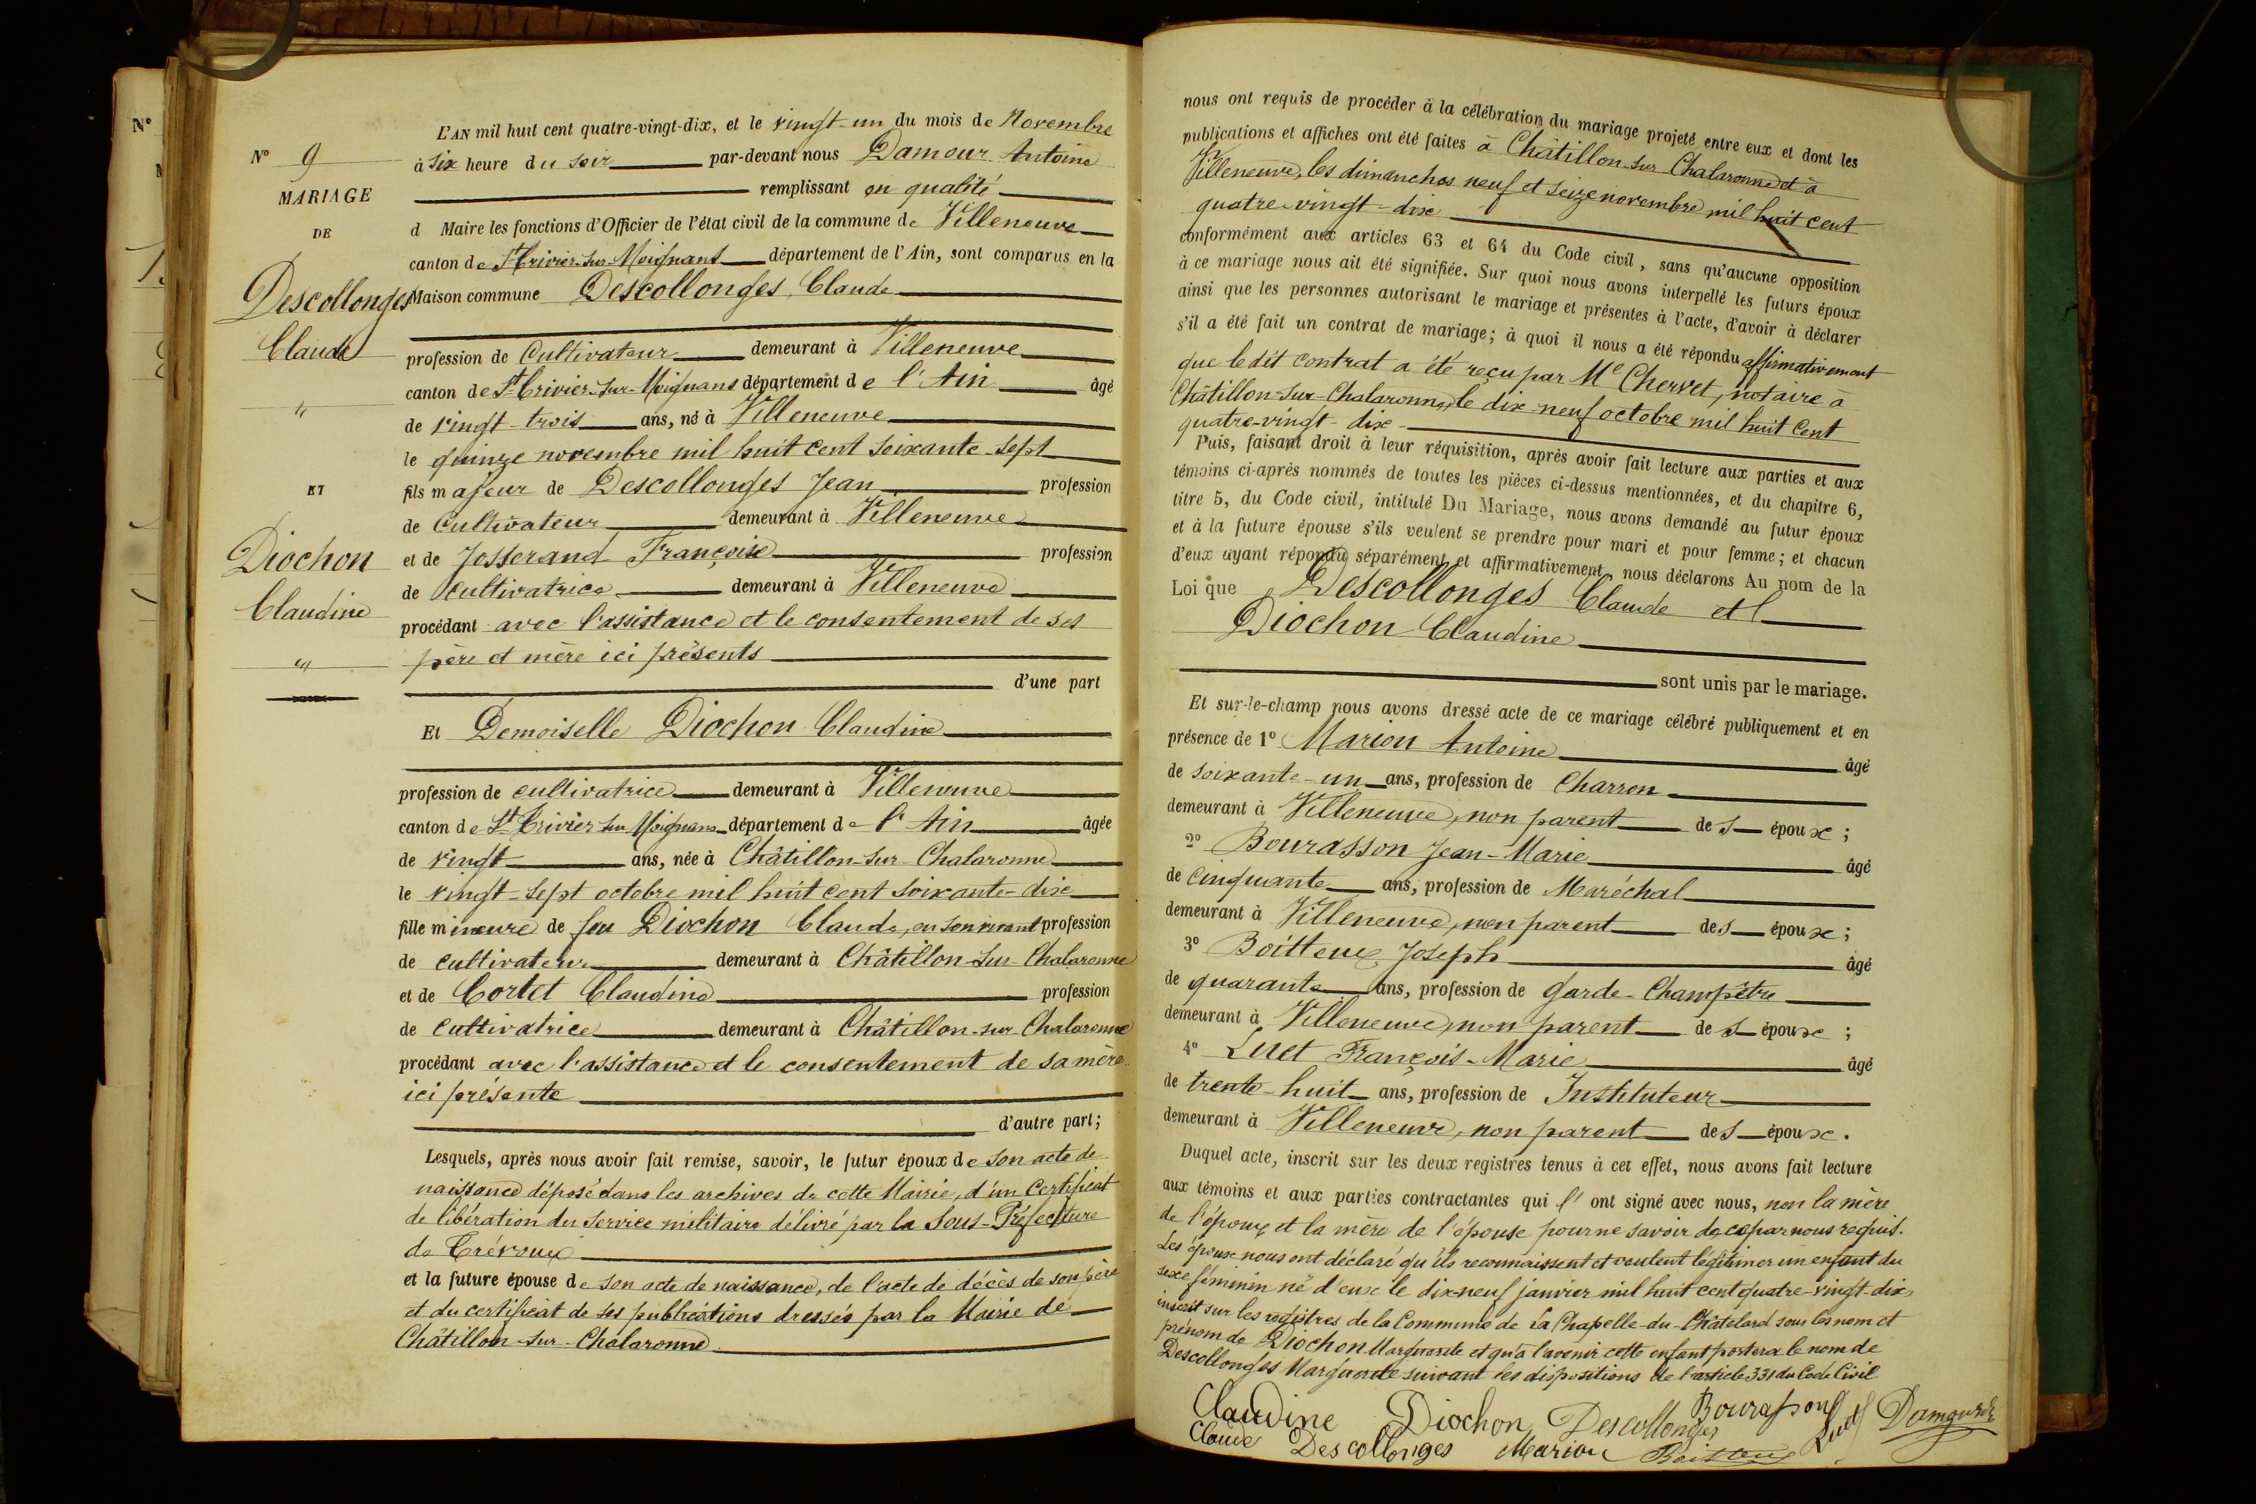 N°
N° 9
MARIAGE
DE
Descollonges
Claude
"
ET
Diochon
Claudine
"
L'AN mil huit cent quatre-vingt-dix, et le vingt-un du mois de Novembre
à six heure du soir par-devant nous Damour Antoine
remplissant en qualité
d Maire les fonctions d'Officier de l'état civil de la commune de Villeneuve
canton de St Trivier-sur-Moignans département de l'Ain, sont comparus en la
Maison commune Descollonges Claude
profession de Cultivateur demeurant à Villeneuve
canton de St Trivier-sur-Moignans département de l'Ain âgé
de vingt-trois ans, né à Villeneuve
le quinze novembre mil huit cent soixante-sept
fils majeur de Descollonges Jean profession
de Cultivateur demeurant à Villeneuve
et de Josserand Françoise profession
de Cultivatrice demeurant à Villeneuve
procédant avec l'assistance et le consentement de ses
père et mère ici présents
d'une part
Et Demoiselle Diochon Claudine
profession de cultivatrice demeurant à Villeneuve
canton de St Trivier sur Moignans département de l'Ain âgée
de vingt ans, née à Châtillon-sur-Chalaronne
le vingt-sept octobre mil huit cent soixante-dix
fille mineure de feu Diochon Claude, en son vivant profession
de cultivateur demeurant à Châtillon-sur-Chalaronne
et de Cortet Claudine profession
de cultivatrice demeurant à Châtillon-sur-Chalaronne
procédant avec l'assistance et le consentement de sa mère
ici présente
d'autre part;
Lesquels, après nous avoir fait remise, savoir, le futur époux de son acte de
naissance déposé dans les archives de cette Mairie, d'un Certificat
de libération du service militaire délivré par la Sous-Préfecture
de Trévoux
et la future épouse de son acte de naissance, de l'acte de décès de son père
et du certificat de ses publications dressés par la Mairie de
Châtillon-sur-Chalaronne
nous ont requis de procéder à la célébration du mariage projeté entre eux et dont les
publications et affiches ont été faites à Châtillon-sur-Chalaronne et à
Villeneuve, les dimanches neuf et seize novembre mil huit cent
quatre-vingt-dix
conformément aux articles 63 et 64 du Code civil, sans qu'aucune opposition
à ce mariage nous ait été signifiée. Sur quoi nous avons interpellé les futurs époux
ainsi que les personnes autorisant le mariage et présentes à l'acte, d'avoir à déclarer
s'il a été fait un contrat de mariage; à quoi il nous a été répondu affirmativement
que le dit contrat a été reçu par Me Chervet, notaire à
Châtillon-sur-Chalaronne, le dix-neuf octobre mil huit cent
quatre-vingt-dix-
Puis, faisant droit à leur réquisition, après avoir fait lecture aux parties et aux
témoins ci-après nommés de toutes les pièces ci-dessus mentionnées, et du chapitre 6,
titre 5, du Code civil, intitulé Du Mariage, nous avons demandé au futur époux
et à la future épouse s'ils veulent se prendre pour mari et pour femme; et chacun
d'eux ayant répondu séparément et affirmativement, nous déclarons Au nom de la
Loi que Descollonges Claude et
Diochon Claudine
sont unis par le mariage.
Et sur-le-champ nous avons dressé acte de ce mariage célébré publiquement et en
présence de 1° Marion Antoine âgé
de soixante-un ans, profession de Charron
demeurant à Villeneuve, non parent des époux;
2° Bourasson Jean-Marie âgé
de cinquante ans, profession de Maréchal
demeurant à Villeneuve, non parent des époux;
3° Boitteux Joseph âgé
de quarante ans, profession de Garde-Champêtre
demeurant à Villeneuve, non parent des époux;
4° Luet François-Marie âgé
de trente-huit ans, profession de Instituteur
demeurant à Villeneuve, non parent des époux.
Duquel acte, inscrit sur les deux registres tenus à cet effet, nous avons fait lecture
aux témoins et aux parties contractantes qui l' ont signé avec nous, non la mère
de l'époux et la mère de l'épouse pour ne savoir de ce par nous requis.
Les époux nous ont déclaré qu'ils reconnaissent et veulent légitimer un enfant du
sexe féminin né d'eux le dix-neuf janvier mil huit cent quatre-vingt-dix,
inscrit sur les registres de la Commune de La Chapelle-du-Châtelard sous les nom et
prénom de Diochon Marguerite et qu'à l'avenir cette enfant portera le nom de
Descollonges Marguerite suivant les dispositions de l'article 331 du Code Civil
Claudine Diochon Descollonges Bourasson Luet Damour
Claude Descollonges Marion Boitteux